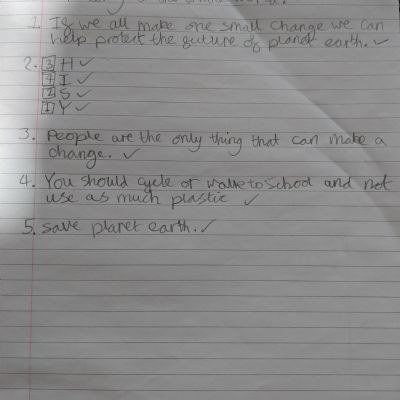 1. If we all make one small change we can
help protect the future of planet earth. ✓
2. 3 H ✓
4 I ✓
2 S ✓
1 Y ✓
3. People are the only thing that can make a
change. ✓
4. You should cycle or walk to school and not
use as much plastic ✓
5. save planet earth. ✓